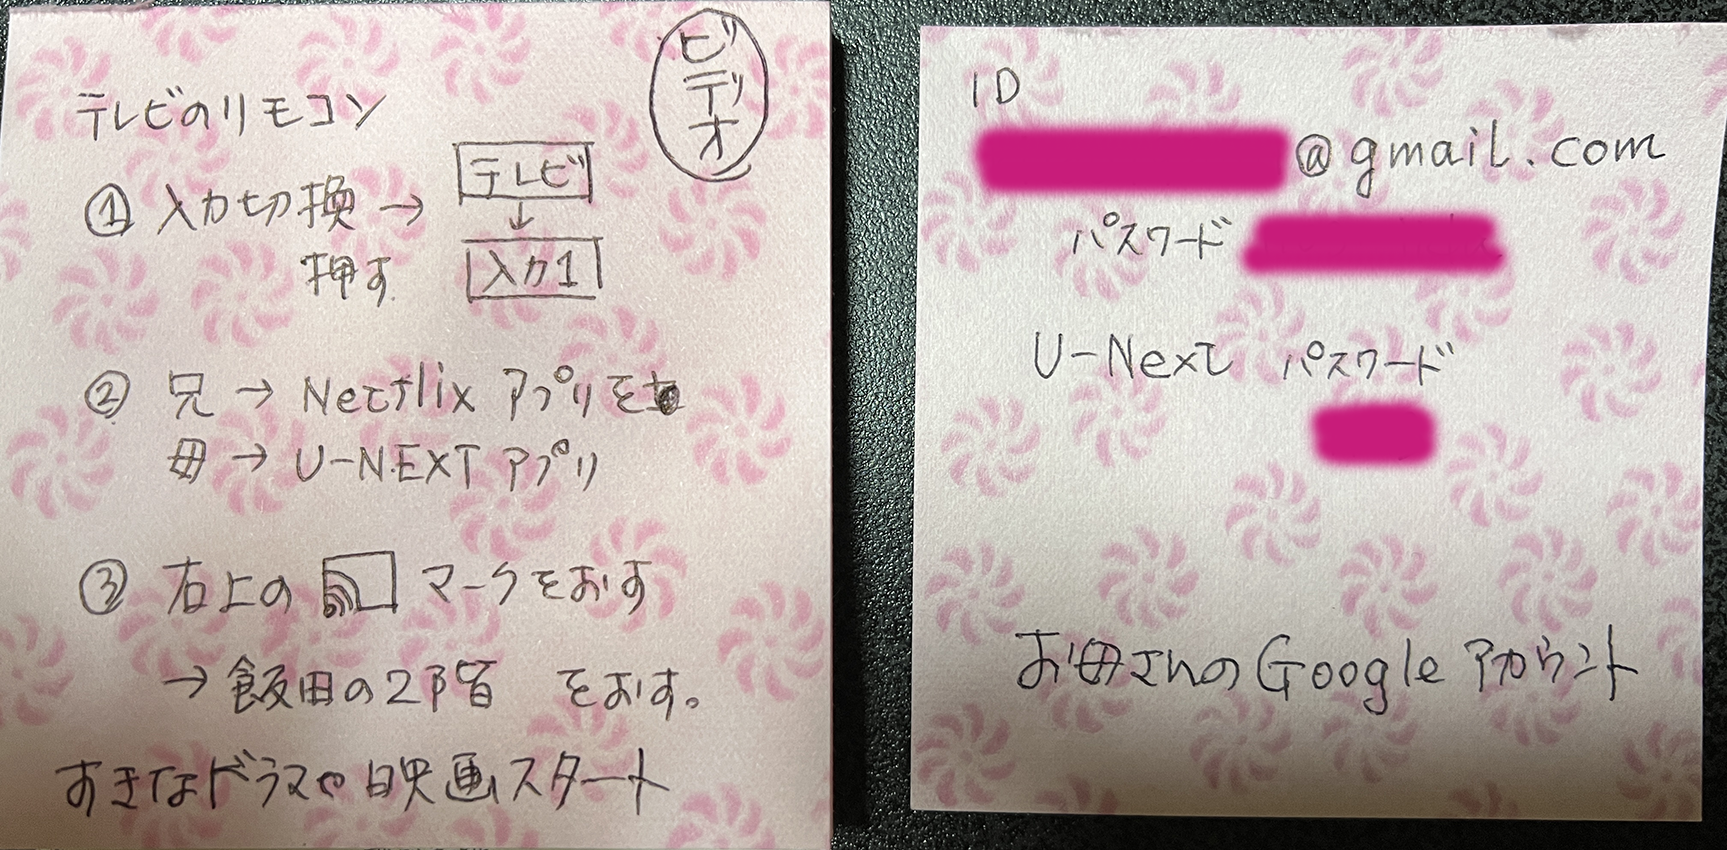 ビデオ
テレビのリモコン
① 入力切換 → テレビ
押す ↓
入力1
② 兄 → Netflix アプリを
母 → U-NEXT アプリ
③ 右上の マークをおす
→ 飯田の2階 をおす。
すきなドラマや映画スタート
ID
@gmail.com
パスワード
U-Next パスワード
お母さんのGoogleアカウント